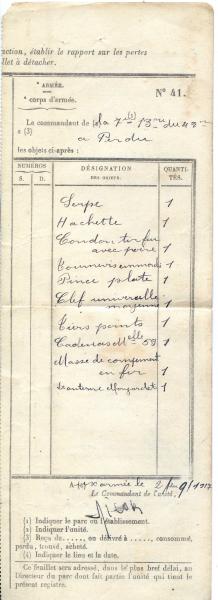 nction, établir le rapport sur les pertes
llet à détacher.
ARMÉE.
corps d'armée.
N° 41.
Le commandant de (2) la 7
(3) a Perdu
les objets ci-après :
NUMÉROS
DÉSIGNATION
DES OBJETS.
QUANTI-
TÉS.
S. D.
Serpe 1
Hachette 1
avec poire 1
Tournevis 1
Pince plate 1
Clef universelle
moyenne 1
Tiers points 1
Cadenas Mlle 59 1
Masse de campement
en fer 1
Lanterne 1
armée le 2 1917
Le Commandant de l'unité.
(1) Indiquer le parc ou l'établissement.
(2) Indiquer l'unité.
(3) Reçu du ....., ou délivré à ....., consommé,
perdu, trouvé, acheté.
(4) Indiquer le lieu et la date.
Ce feuillet sera adressé, dans le plus bref délai, au
Directeur du parc dont fait partie l'unité qui tient le
présent registre.